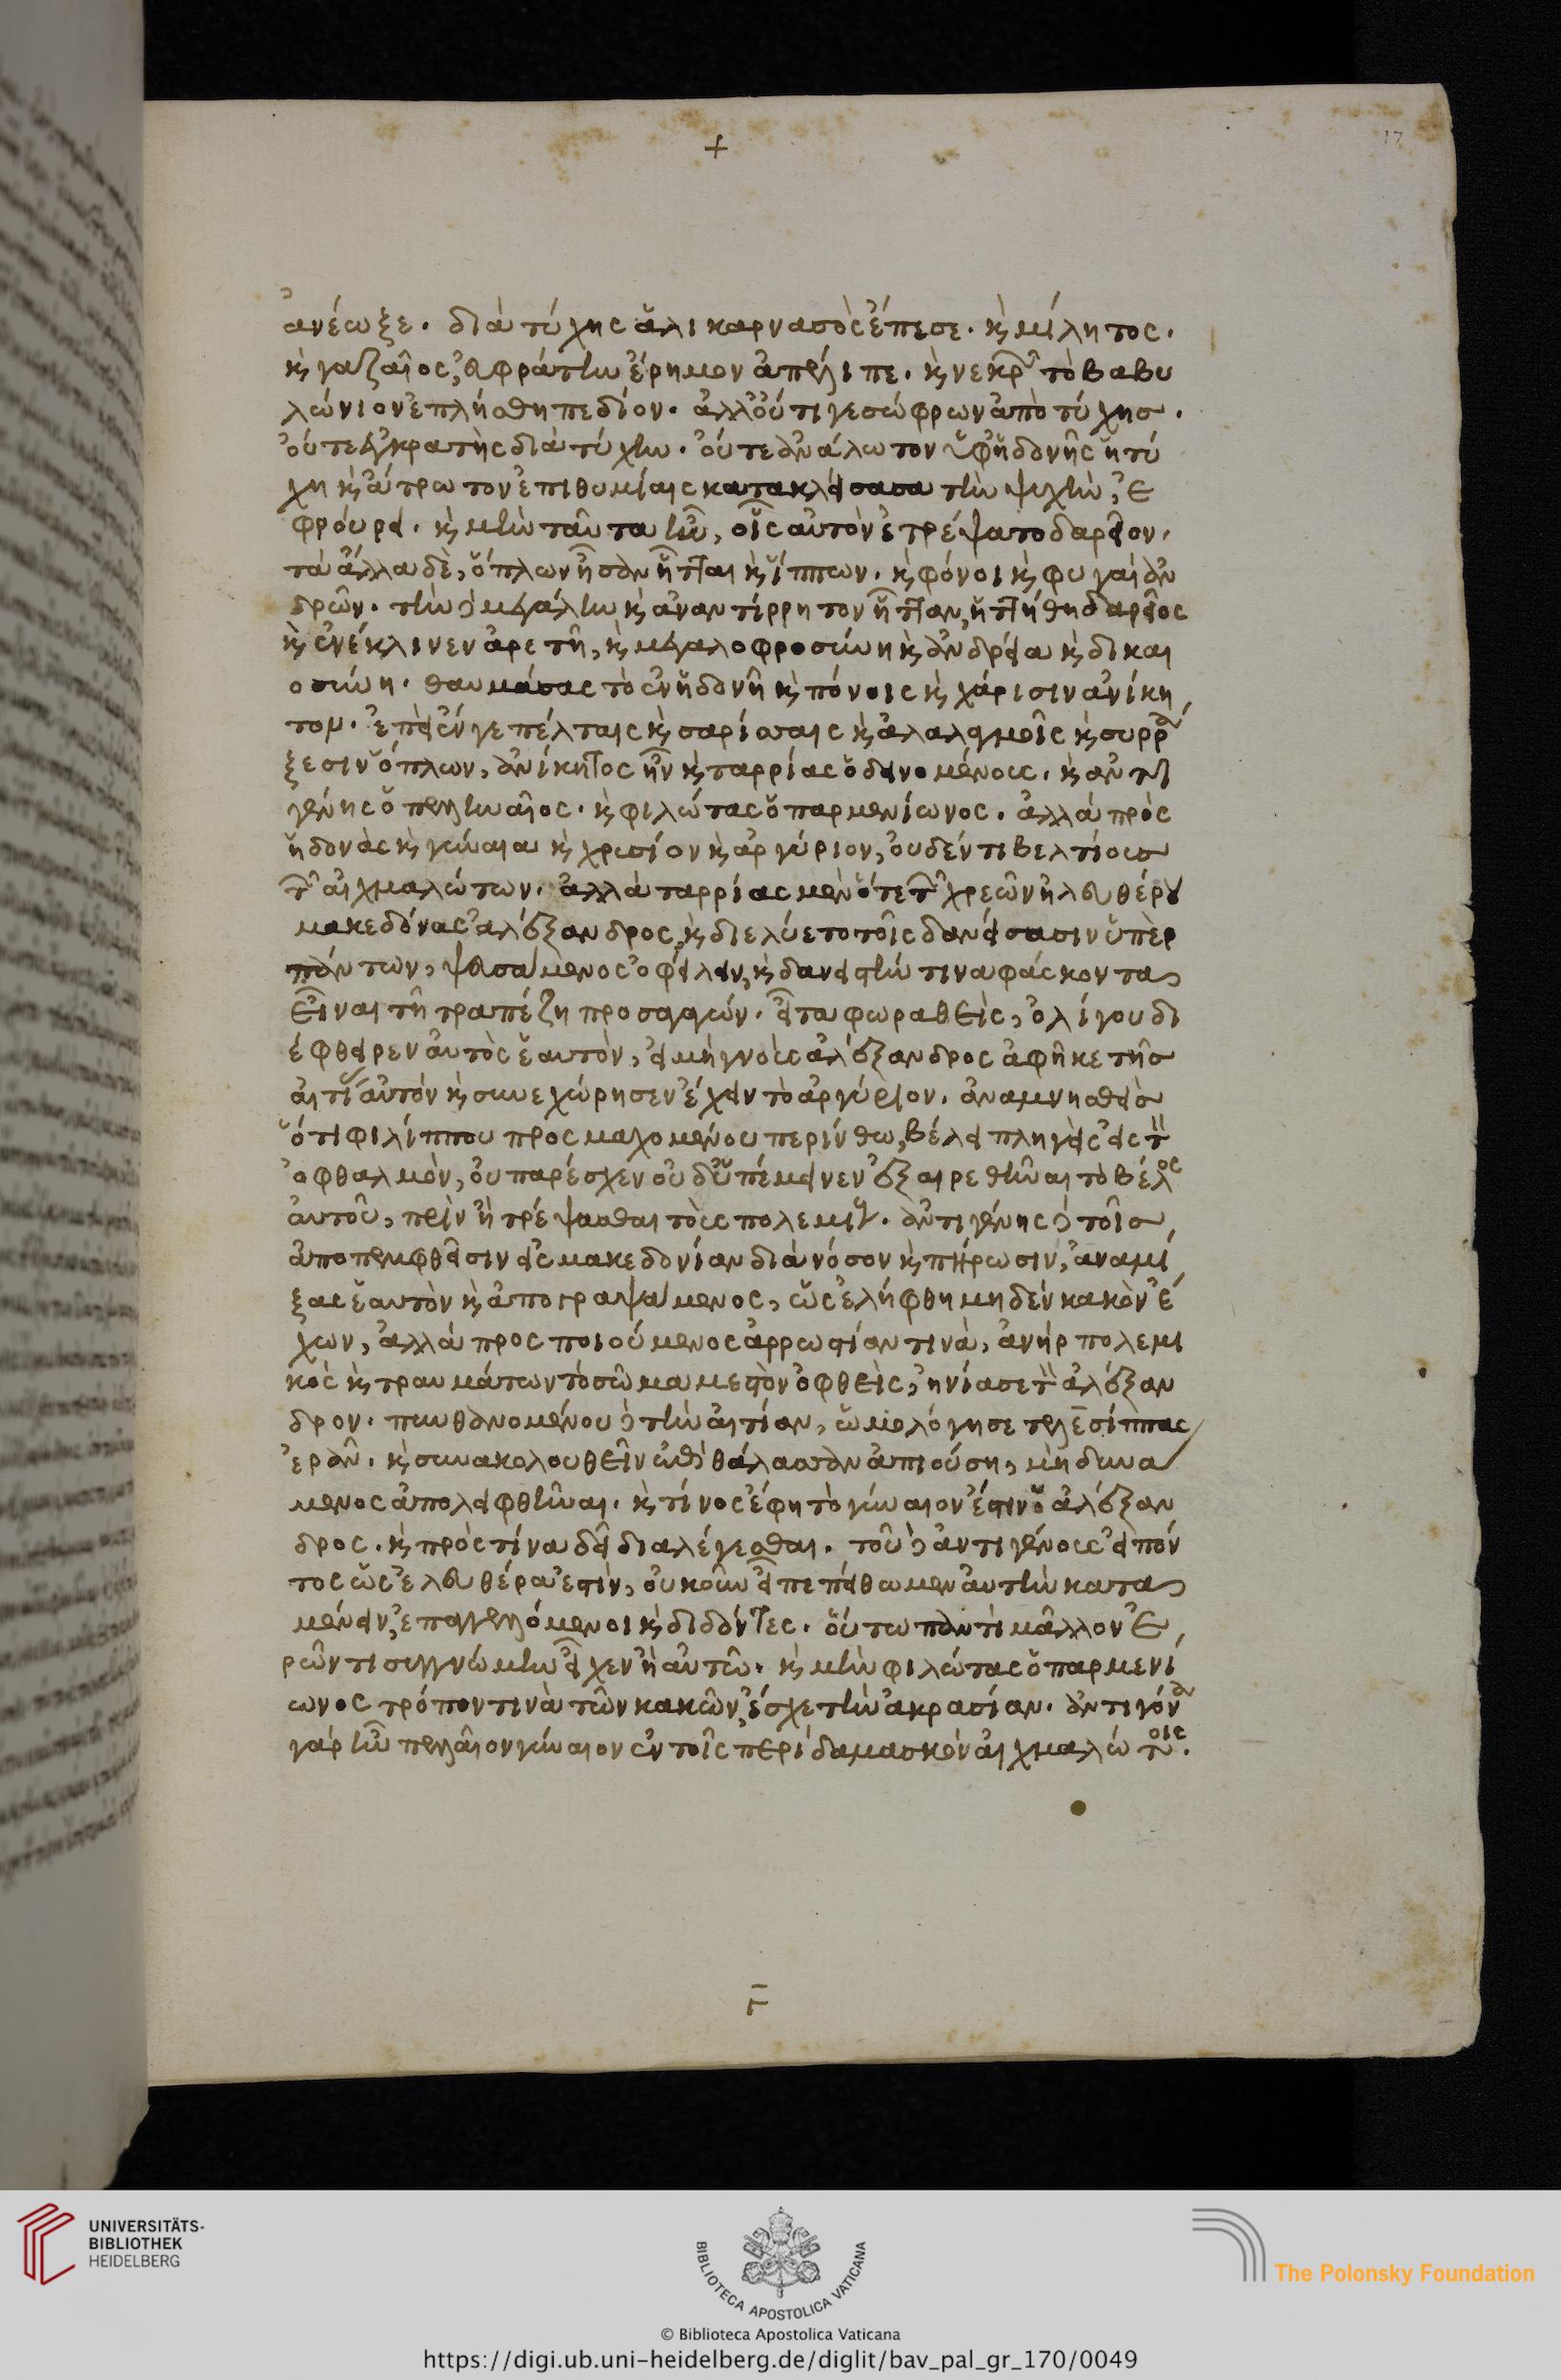 ἀνέωξε. διὰ τύχης ἁλικαρνασὸς ἔπεσε. ϗ̀ μίλητος.
ϗ̀ γαζαῖος, εὐφράτην ἔρημον ἀπέλιπε. ϗ̀ νεκρῶν τὸ βαβυ
λώνιον ἐπλήσθη πεδίον. ἀλλ' οὔτι γε σώφρων ἀπὸ τύχης.
οὔτε ἐγκρατὴς διὰ τύχην. οὔτε ἀνάλωτον ὑφ' ἡδονῆς ἡ τύ
χη ϗ̀ ἄτρωτον ἐπιθυμίαις κατακλείσασα τὴν ψυχὴν, ἐ
φρούρει. ϗ̀ μὴν ταῦτα ἦν, οἷς αὐτὸν ἐτρέψατο δαρεῖον.
τὰ ἄλλα δὲ, ὅπλων ἦσαν ἧτται ϗ̀ ἵππων. ϗ̀ φόνοι ϗ̀ φυγαὶ ἀν
δρῶν. τὴν δὲ μεγάλην ϗ̀ ἀναντίρρητον ἧτταν, ἡττήθη δαρεῖος
ϗ̀ ἐνέκλινεν ἀρετῆ, ϗ̀ μεγαλοφροσύνη ϗ̀ ἀνδρεία ϗ̀ δικαι
οσύνη. θαυμάσας τὸ ἐν ἡδονῆ ϗ̀ πόνοις ϗ̀ χάρισιν ἀνίκη
τον. ἐπεὶ ἔν γε πέλταις ϗ̀ σαρίσαις ϗ̀ ἀλαλαγμοῖς ϗ̀ συρρά
ξεσιν ὅπλων, ἀνίκητος ἦν ϗ̀ ταρρίας ὁ δεινομένους. ϗ̀ ἀντι
γένης ὁ πελληναῖος. ϗ̀ φιλώτας ὁ παρμενίωνος. ἀλλὰ πρὸς
ἡδονὰς ϗ̀ γύναια ϗ̀ χρυσίον ϗ̀ ἀργύριον, οὐδέν τι βελτίους
τῶν αἰχμαλώτων. ἀλλὰ ταρρίας μὲν ὅτε τῶν χρεῶν ἠλευθέρου
μακεδόνας ἀλέξανδρος, ϗ̀ διελύετο τοῖς δανείσασιν ὑπὲρ
πάντων, ψευσάμενος ὀφείλειν, ϗ̀ δανειστήν τινα φάσκοντα
εἶναι τῆ τραπέζη προσαγαγών. εἶτα φωραθεὶς, ὀλίγου δι
έφθειρεν αὐτὸς ἑαυτὸν, εἰ μὴ γνοὺς ἀλέξανδρος ἀφῆκε τῆς
αἰτίας αὐτόν ϗ̀ συνεχώρησεν ἔχειν τὸ ἀργύριον. ἀναμνησθεὶς
ὅτι φιλίππου προσμαχομένου περίνθω, βέλει πληγεὶς εἰς τὸν
ὀφθαλμὸν, οὐ παρέσχεν οὐδ' ὑπέμεινεν ἐξαιρεθῆναι τὸ βέλος
αὐτοῦ, πρὶν ἢ τρέψασθαι τοὺς πολεμίους. ἀντιγένης δὲ τοῖς
ἀποπεμφθεῖσιν εἰς μακεδονίαν διὰ νόσον ϗ̀ πήρωσιν, ἀναμί
ξας ἑαυτὸν ϗ̀ ἀπογραψάμενος, ὡς ἐλήφθη μηδὲν κακὸν ἔ
χων, ἀλλὰ προσποιούμενος ἀρρωστίαν τινὰ, ἀνὴρ πολεμι
κὸς ϗ̀ τραυμάτων τὸ σῶμα μεστὸν ὀφθεὶς, ἠνίασε τὸν ἀλέξαν
δρον. πυνθανομένου δὲ τὴν αἰτίαν, ὡμολόγησε τελεσίππας
ἐρᾶν. ϗ̀ συνακολουθεῖν ἐπὶ θάλασσαν ἀπιούση, μὴ δυνά
μενος ἀπολειφθῆναι. ϗ̀ τίνος ἔφη τὸ γύναιον ἔστιν ὁ ἀλέξαν
δρος. ϗ̀ πρὸς τίνα δεῖ διαλέγεσθαι. τοῦ δὲ ἀντιγένους εἰπόν
τος ὡς ἐλευθέρα ἐστὶν, οὐκοῦν εἶπε πείθωμεν αὐτὴν κατα
μένειν, ἐπαγγελλόμενοι ϗ̀ διδόντες. οὕτω παντὶ μᾶλλον ἐ
ρῶντι συγγνώμην εἶχεν ἢ αὑτῶ. ϗ̀ μὴν φιλώτας ὁ παρμενί
ωνος τρόπον τινὰ τῶν κακῶν, ἔσχε τὴν ἀκρασίαν. ἀντιγόνα
γὰρ ἦν πελλαῖον γύναιον ἐν τοῖς περὶ δαμασκὸν αἰχμαλώτοις.
UNIVERSITÄTS-
BIBLIOTHEK
HEIDELBERG
BIBLIOTECA APOSTOLICA VATICANA
The Polonsky Foundation
© Biblioteca Apostolica Vaticana
https://digi.ub.uni-heidelberg.de/diglit/bav_pal_gr_170/0049